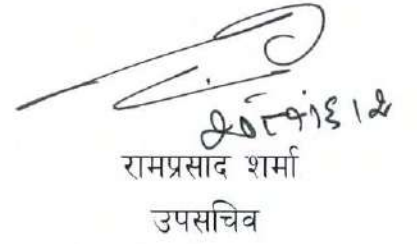 रामप्रसाद शर्मा
उपसचिव